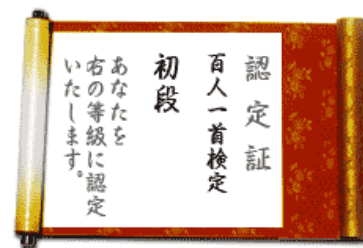 認定証
百人一首検定
初段
あなたを
右の等級に認定
いたします。